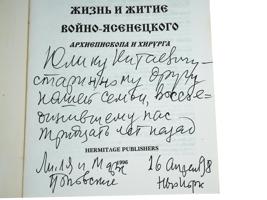 ЖИЗНЬ И ЖИТИЕ
ВОЙНО-ЯСЕНЕЦКОГО
АРХИЕПИСКОПА И ХИРУРГА
Юлику Китаевичу —
старинному другу
нашей семьи, воссое-
динившему нас
тридцать лет назад
HERMITAGE PUBLISHERS
1996
Лиля и Марк
Поповские
16 апреля 98
Нью Йорк